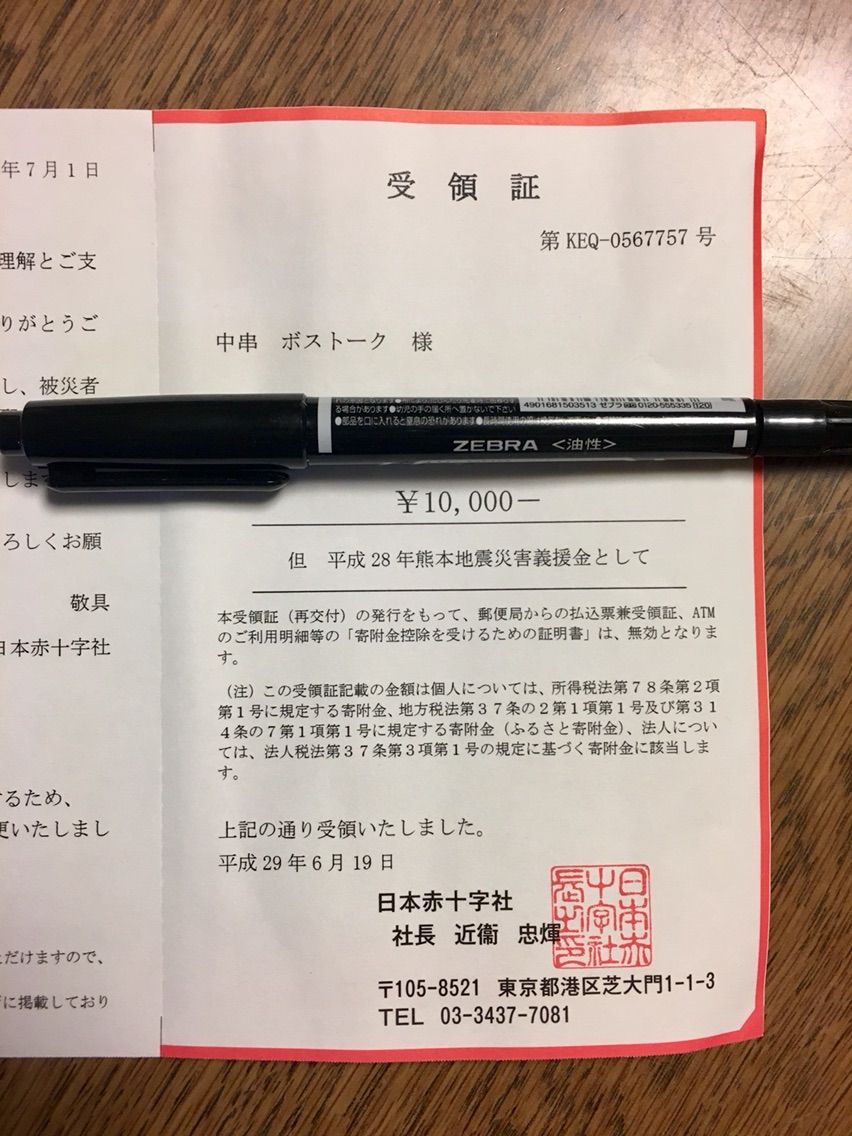 年７月１日
理解とご支
りがとうご
し、被災者
しま
ろしくお願
敬具
日本赤十字社
するため、
更いたしまし
ただけますので、
に掲載しており
受領証
第 KEQ-0567757 号
中串　ボストーク　様
る場合があります●幼児の手の届く所へ置かないで下さい
●部品を口に入れると窒息の恐れがあります
4901681503513 ゼブラ 0120-555335 (120)
ZEBRA ＜油性＞
￥10,000－
但　平成 28 年熊本地震災害義援金として
本受領証（再交付）の発行をもって、郵便局からの払込票兼受領証、ATM
のご利用明細等の「寄附金控除を受けるための証明書」は、無効となりま
す。
（注）この受領証記載の金額は個人については、所得税法第７８条第２項
第１号に規定する寄附金、地方税法第３７条の２第１項第１号及び第３１
４条の７第１項第１号に規定する寄附金（ふるさと寄附金）、法人につい
ては、法人税法第３７条第３項第１号の規定に基づく寄附金に該当しま
す。
上記の通り受領いたしました。
平成 29 年 6 月 19 日
日本赤十字社
社長　近衞　忠煇
日本赤
十字社
長之印
〒105-8521　東京都港区芝大門1-1-3
TEL　03-3437-7081